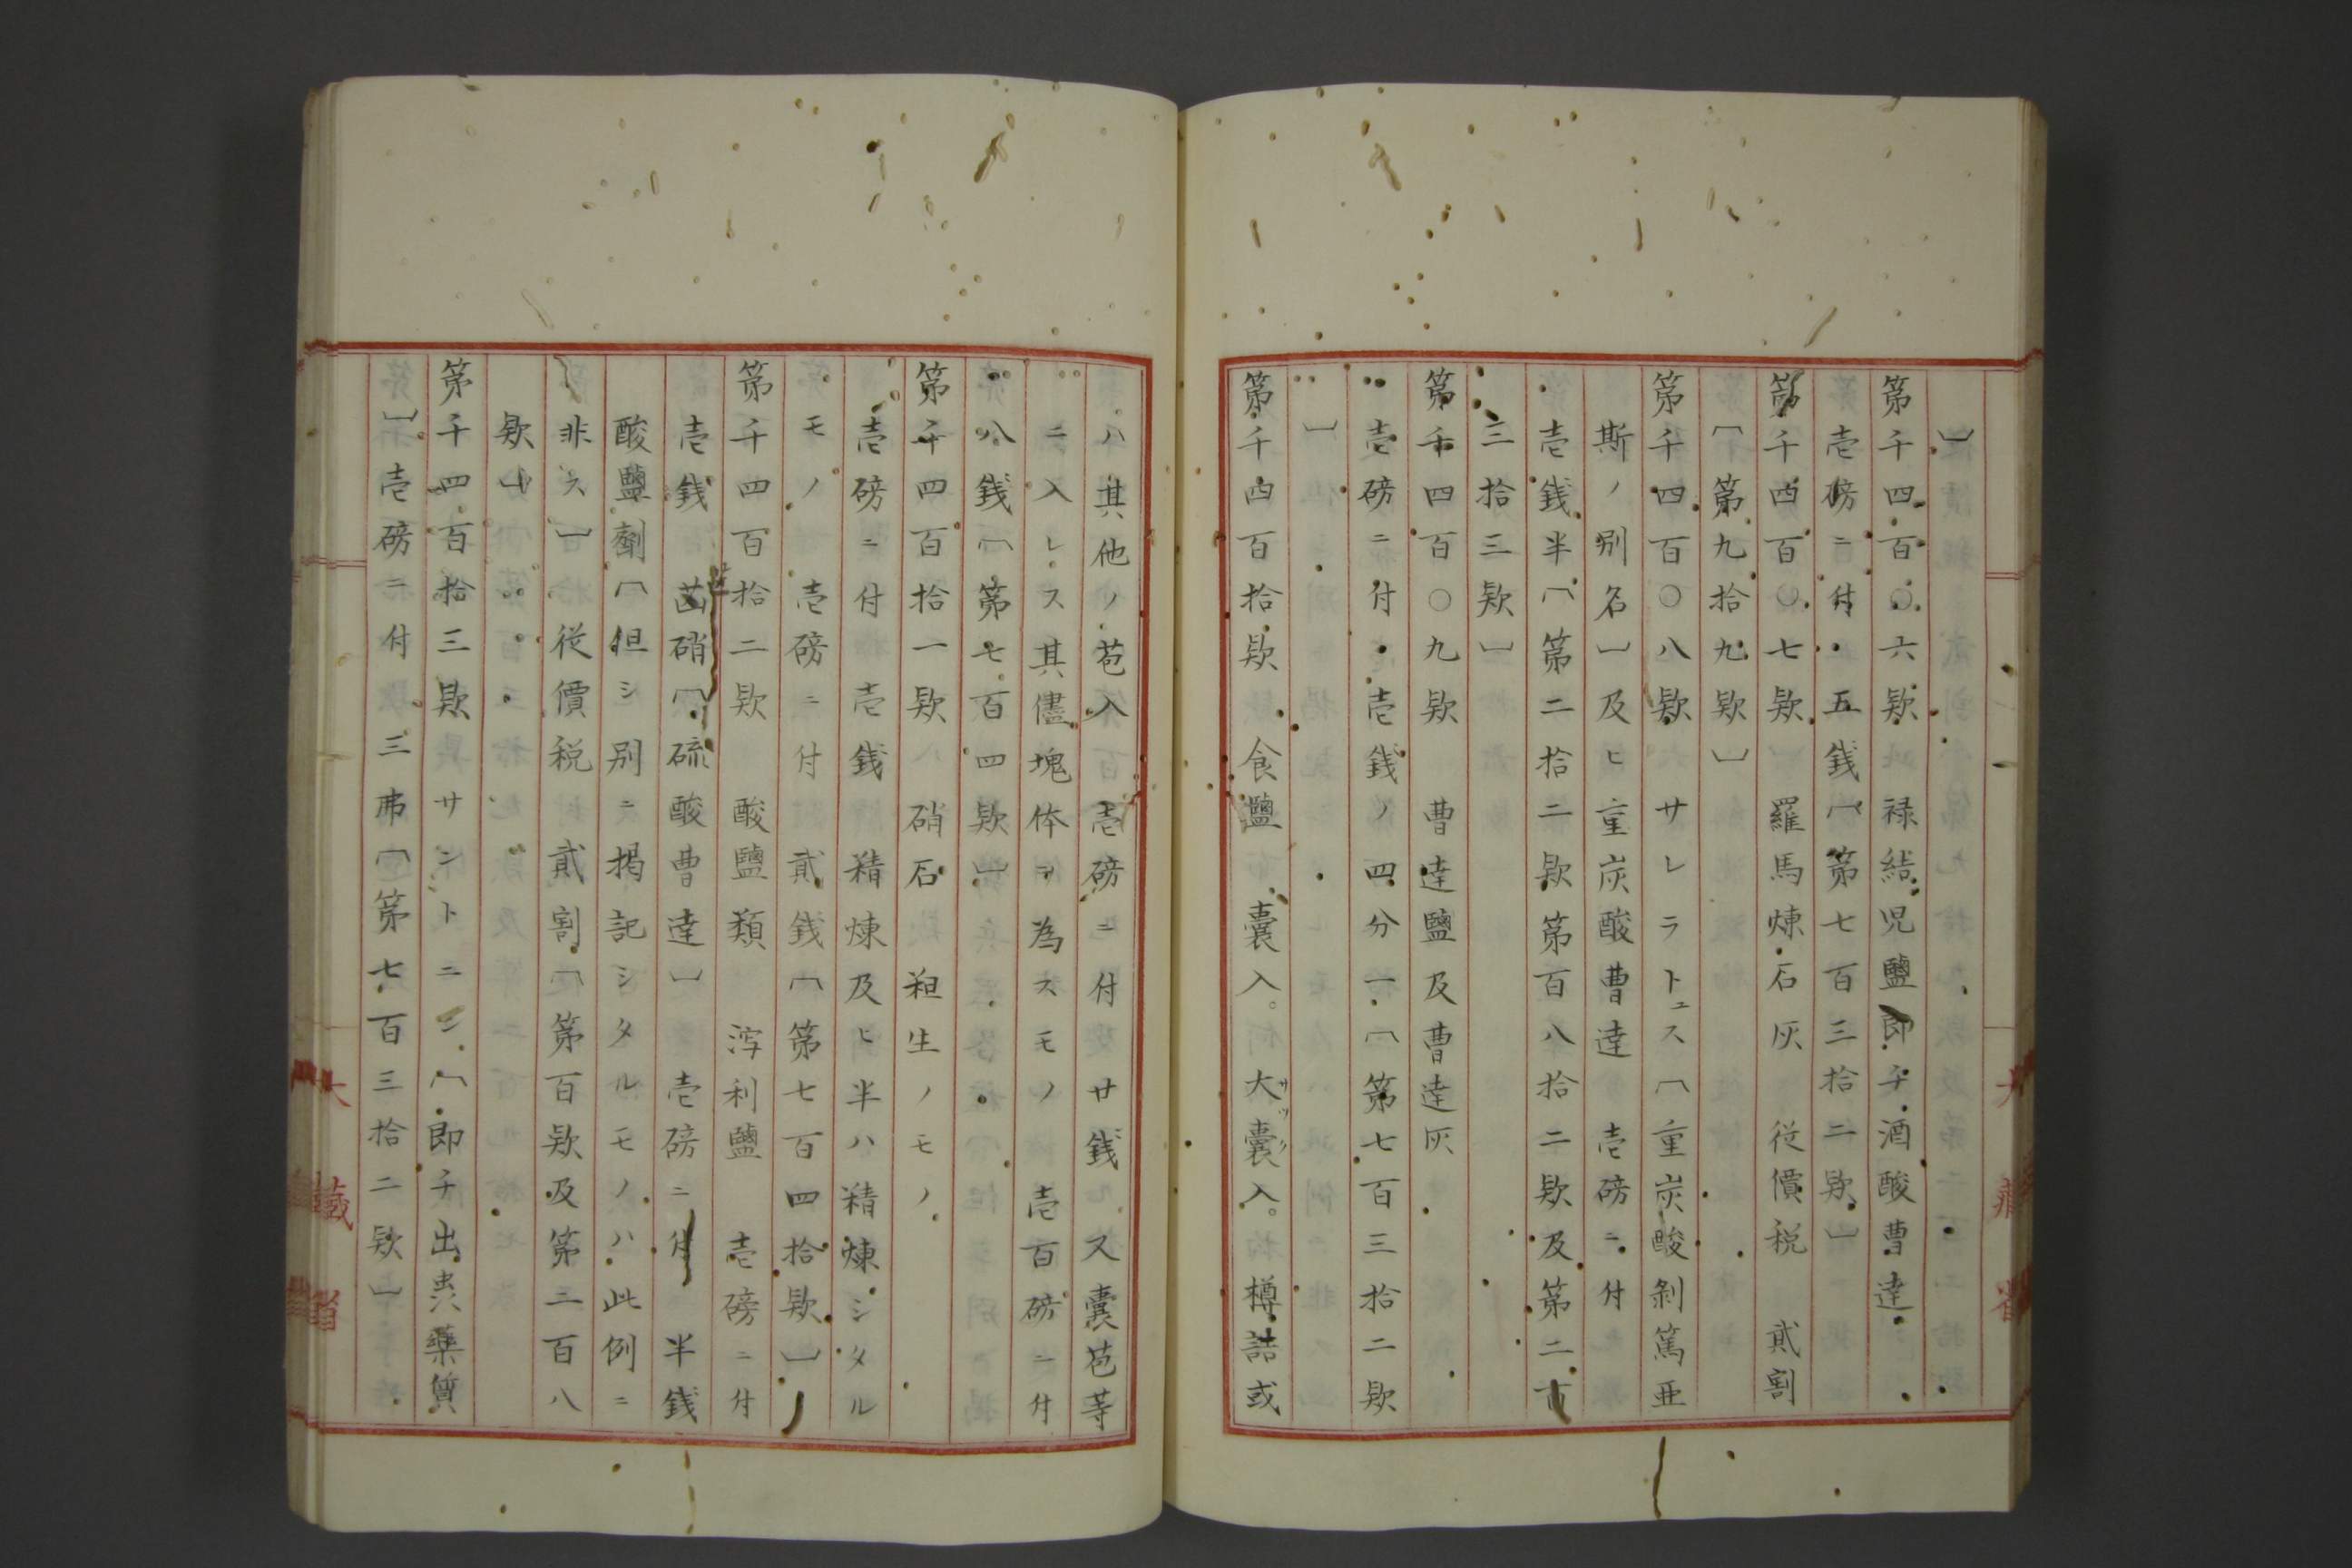 〕
第千四百〇六欵　禄結児鹽即チ酒酸曹達
壱磅ニ付　五銭〔第七百三拾二欵〕
第千四百〇七欵　羅馬煉石灰　従價税　貮割
〔第九拾九欵〕
第千四百〇八欵　サレラトュス〔重炭酸剝篤亜
斯ノ別名〕及ヒ重炭酸曹達　壱磅ニ付
壱銭半〔第二拾二欵第百八拾二欵及第二百
三拾三欵〕
第千四百〇九欵　曹達鹽及曹達灰
壱磅ニ付　壱銭ノ四分一〔第七百三拾二欵
〕
第千四百拾欵　食鹽　嚢入。大嚢入。樽詰或
ハ其他ノ苞入　壱磅ニ付廿銭　又嚢苞䓁
ニ入レス其儘塊体ヲ為スモノ　壱百磅ニ付
八銭〔第七百四欵〕
第千四百拾一欵　硝石　粗生ノモノ
壱磅ニ付　壱銭　精煉及ヒ半ハ精煉シタル
モノ　壱磅ニ付　貮銭〔第七百四拾欵〕
第千四百拾二欵　酸鹽類　瀉利鹽　壱磅ニ付
壱銭　芒硝〔硫酸曹達〕　壱磅ニ付　半銭
酸鹽劑〔但シ別ニ掲記シタルモノハ此例ニ
非ス〕　従價税　貮割〔第百欵及第三百八
欵〕
第千四百拾三欵　サントニン〔即チ出虫藥質
〕壱磅ニ付　三弗〔第七百三拾二欵〕
大藏省
大藏省